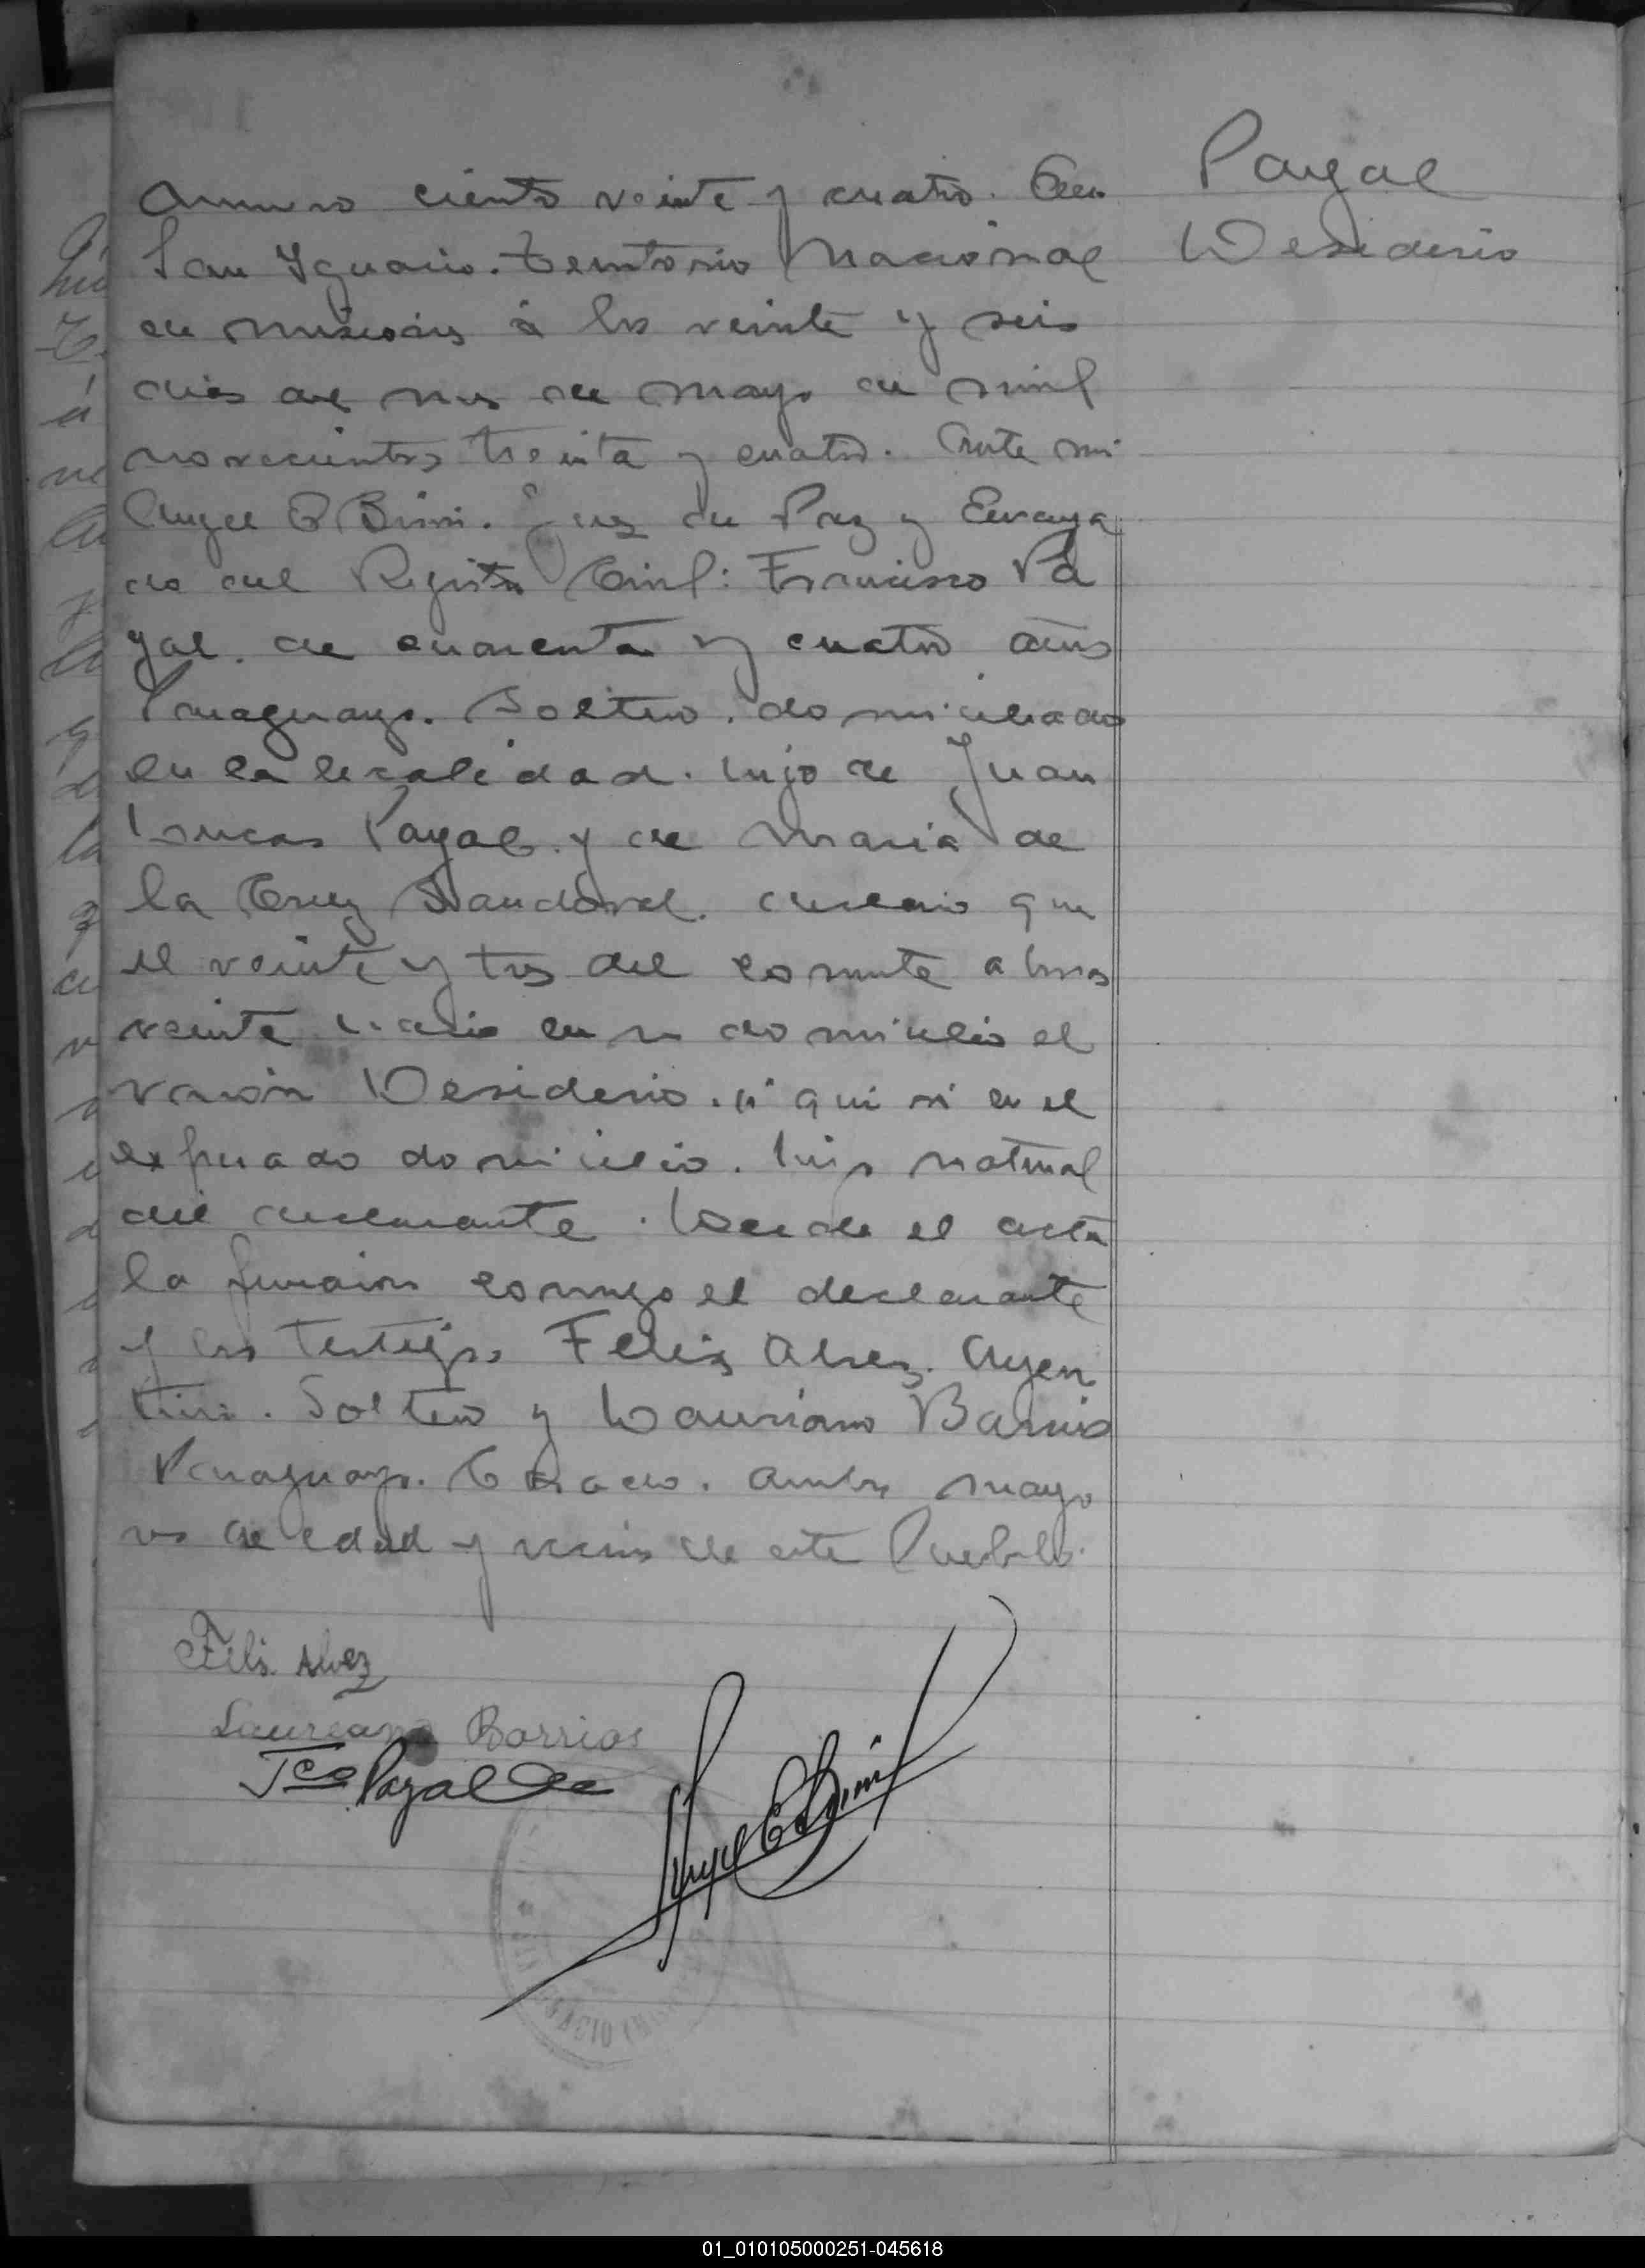 Payal
Desiderio
Numero ciento veinte y cuatro. En
San Ygnacio. Territorio Nacional
de Misiones á los veinte y seis
dias del mes de Mayo de mil
novecientos treinta y cuatro. Ante mi
Angel E Bini. Juez de Paz y Encarga
do del Registro Civil: Francisco Pa
yal. de cuarenta y cuatro años
Paraguayo. Soltero. domiciliado
en la localidad. hijo de Juan
Lucas Payal. y de Maria de
la Cruz Sandoval. declaro que
el veinte y tres del corriente a horas
veinte nacio en su domicilio el
varon Desiderio. á qui vi en el
expresado domicilio. hijo natural
del declarante. Leida el acta
la firmaron conmigo el declarante
y los testigos Feliz Alvez. Argen
tino. Soltero y Laureano Barrios
Paraguayo. Casado. ambos mayo
res de edad y vecinos de este Pueblo.
Felis Alvez
Laureano Barrios
Fco Payal
Angel E Bini
01_010105000251-045618